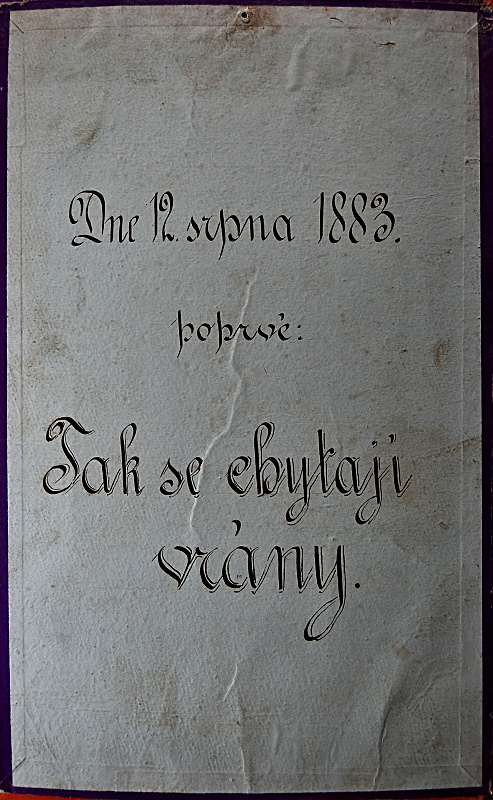 Dne 12. srpna 1883.
poprvé:
Tak se chytají
vrány.